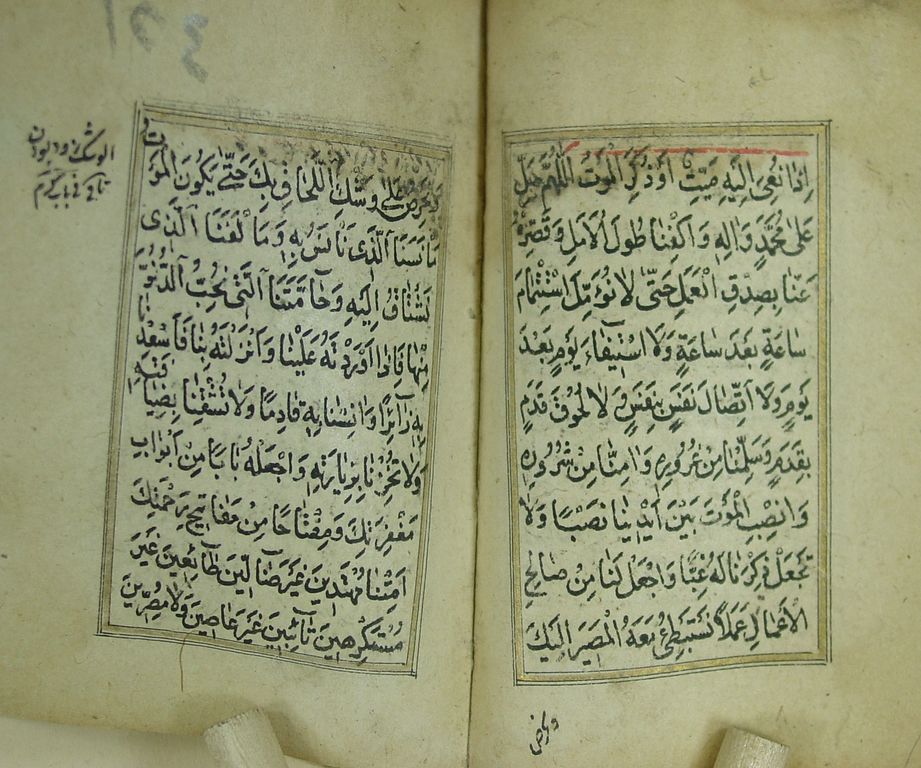 اِذَا نُعِىَ اِلَيْهِ مَيِّتٌ اَوْ ذَكَرَ الْمَوْتَ اَللّٰهُمَّ صَلِّ
عَلٰى مُحَمَّدٍ وَاٰلِهِ وَاكْفِنَا طُولَ الْاَمَلِ وَقَصِّرْهُ
عَنَّا بِصِدْقِ الْعَمَلِ حَتّٰى لَا نُؤَمِّلَ اسْتِتْمَامَ
سَاعَةٍ بَعْدَ سَاعَةٍ وَلَا اسْتِيفَاءَ يَوْمٍ بَعْدَ
يَوْمٍ وَلَا اتِّصَالَ نَفَسٍ بِنَفَسٍ وَلَا لُحُوقَ قَدَمٍ
بِقَدَمٍ وَسَلِّمْنَا مِنْ غُرُورِهِ وَاٰمِنَّا مِنْ شُرُورِهِ
وَانْصِبِ الْمَوْتَ بَيْنَ اَيْدِينَا نَصْبًا وَلَا
تَجْعَلْ ذِكْرَنَا لَهُ غِبًّا وَاجْعَلْ لَنَا مِنْ صَالِحِ
الْاَعْمَالِ عَمَلًا نَسْتَبْطِئُ مَعَهُ الْمَصِيرَ اِلَيْكَ
ونحرص
وَنَحْرِصُ عَلٰى وَشْكِ اللَّحَاقِ بِكَ حَتّٰى يَكُونَ الْمَوْتُ
مَأْنَسَنَا الَّذِى نَأْنَسُ بِهِ وَمَأْلَفَنَا الَّذِى
نَشْتَاقُ اِلَيْهِ وَحَامَّتَنَا الَّتِى نُحِبُّ الدُّنُوَّ
مِنْهَا فَاِذَا اَوْرَدْتَهُ عَلَيْنَا وَاَنْزَلْتَهُ بِنَا فَاَسْعِدْنَا
بِهِ زَائِرًا وَاٰنِسْنَا بِهِ قَادِمًا وَلَا تُشْقِنَا بِضِيَافَتِهِ
وَلَا تُخْزِنَا بِزِيَارَتِهِ وَاجْعَلْهُ بَابًا مِنْ اَبْوَابِ
مَغْفِرَتِكَ وَمِفْتَاحًا مِنْ مَفَاتِيحِ رَحْمَتِكَ
اَمِتْنَا مُهْتَدِينَ غَيْرَ ضَالِّينَ طَائِعِينَ غَيْرَ
مُسْتَكْرِهِينَ تَائِبِينَ غَيْرَ عَاصِينَ وَلَا مُصِرِّينَ
الوشك زود بودن